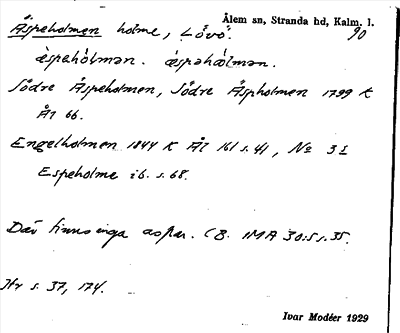 Ålem sn, Stranda hd, Kalm. l.
Äspeholmen holme, Lövö. 90
Södre Äspeholmen, Södre Äspholmen 1799 K
Äl 66.
Engelholmen 1844 K Äl 161 s. 41, No 3 I
Espeholme ib. s. 68.
Där finns inga aspar. CB. IMA 30:5 s. 35.
Hr s. 37, 174.
Ivar Modéer 1929